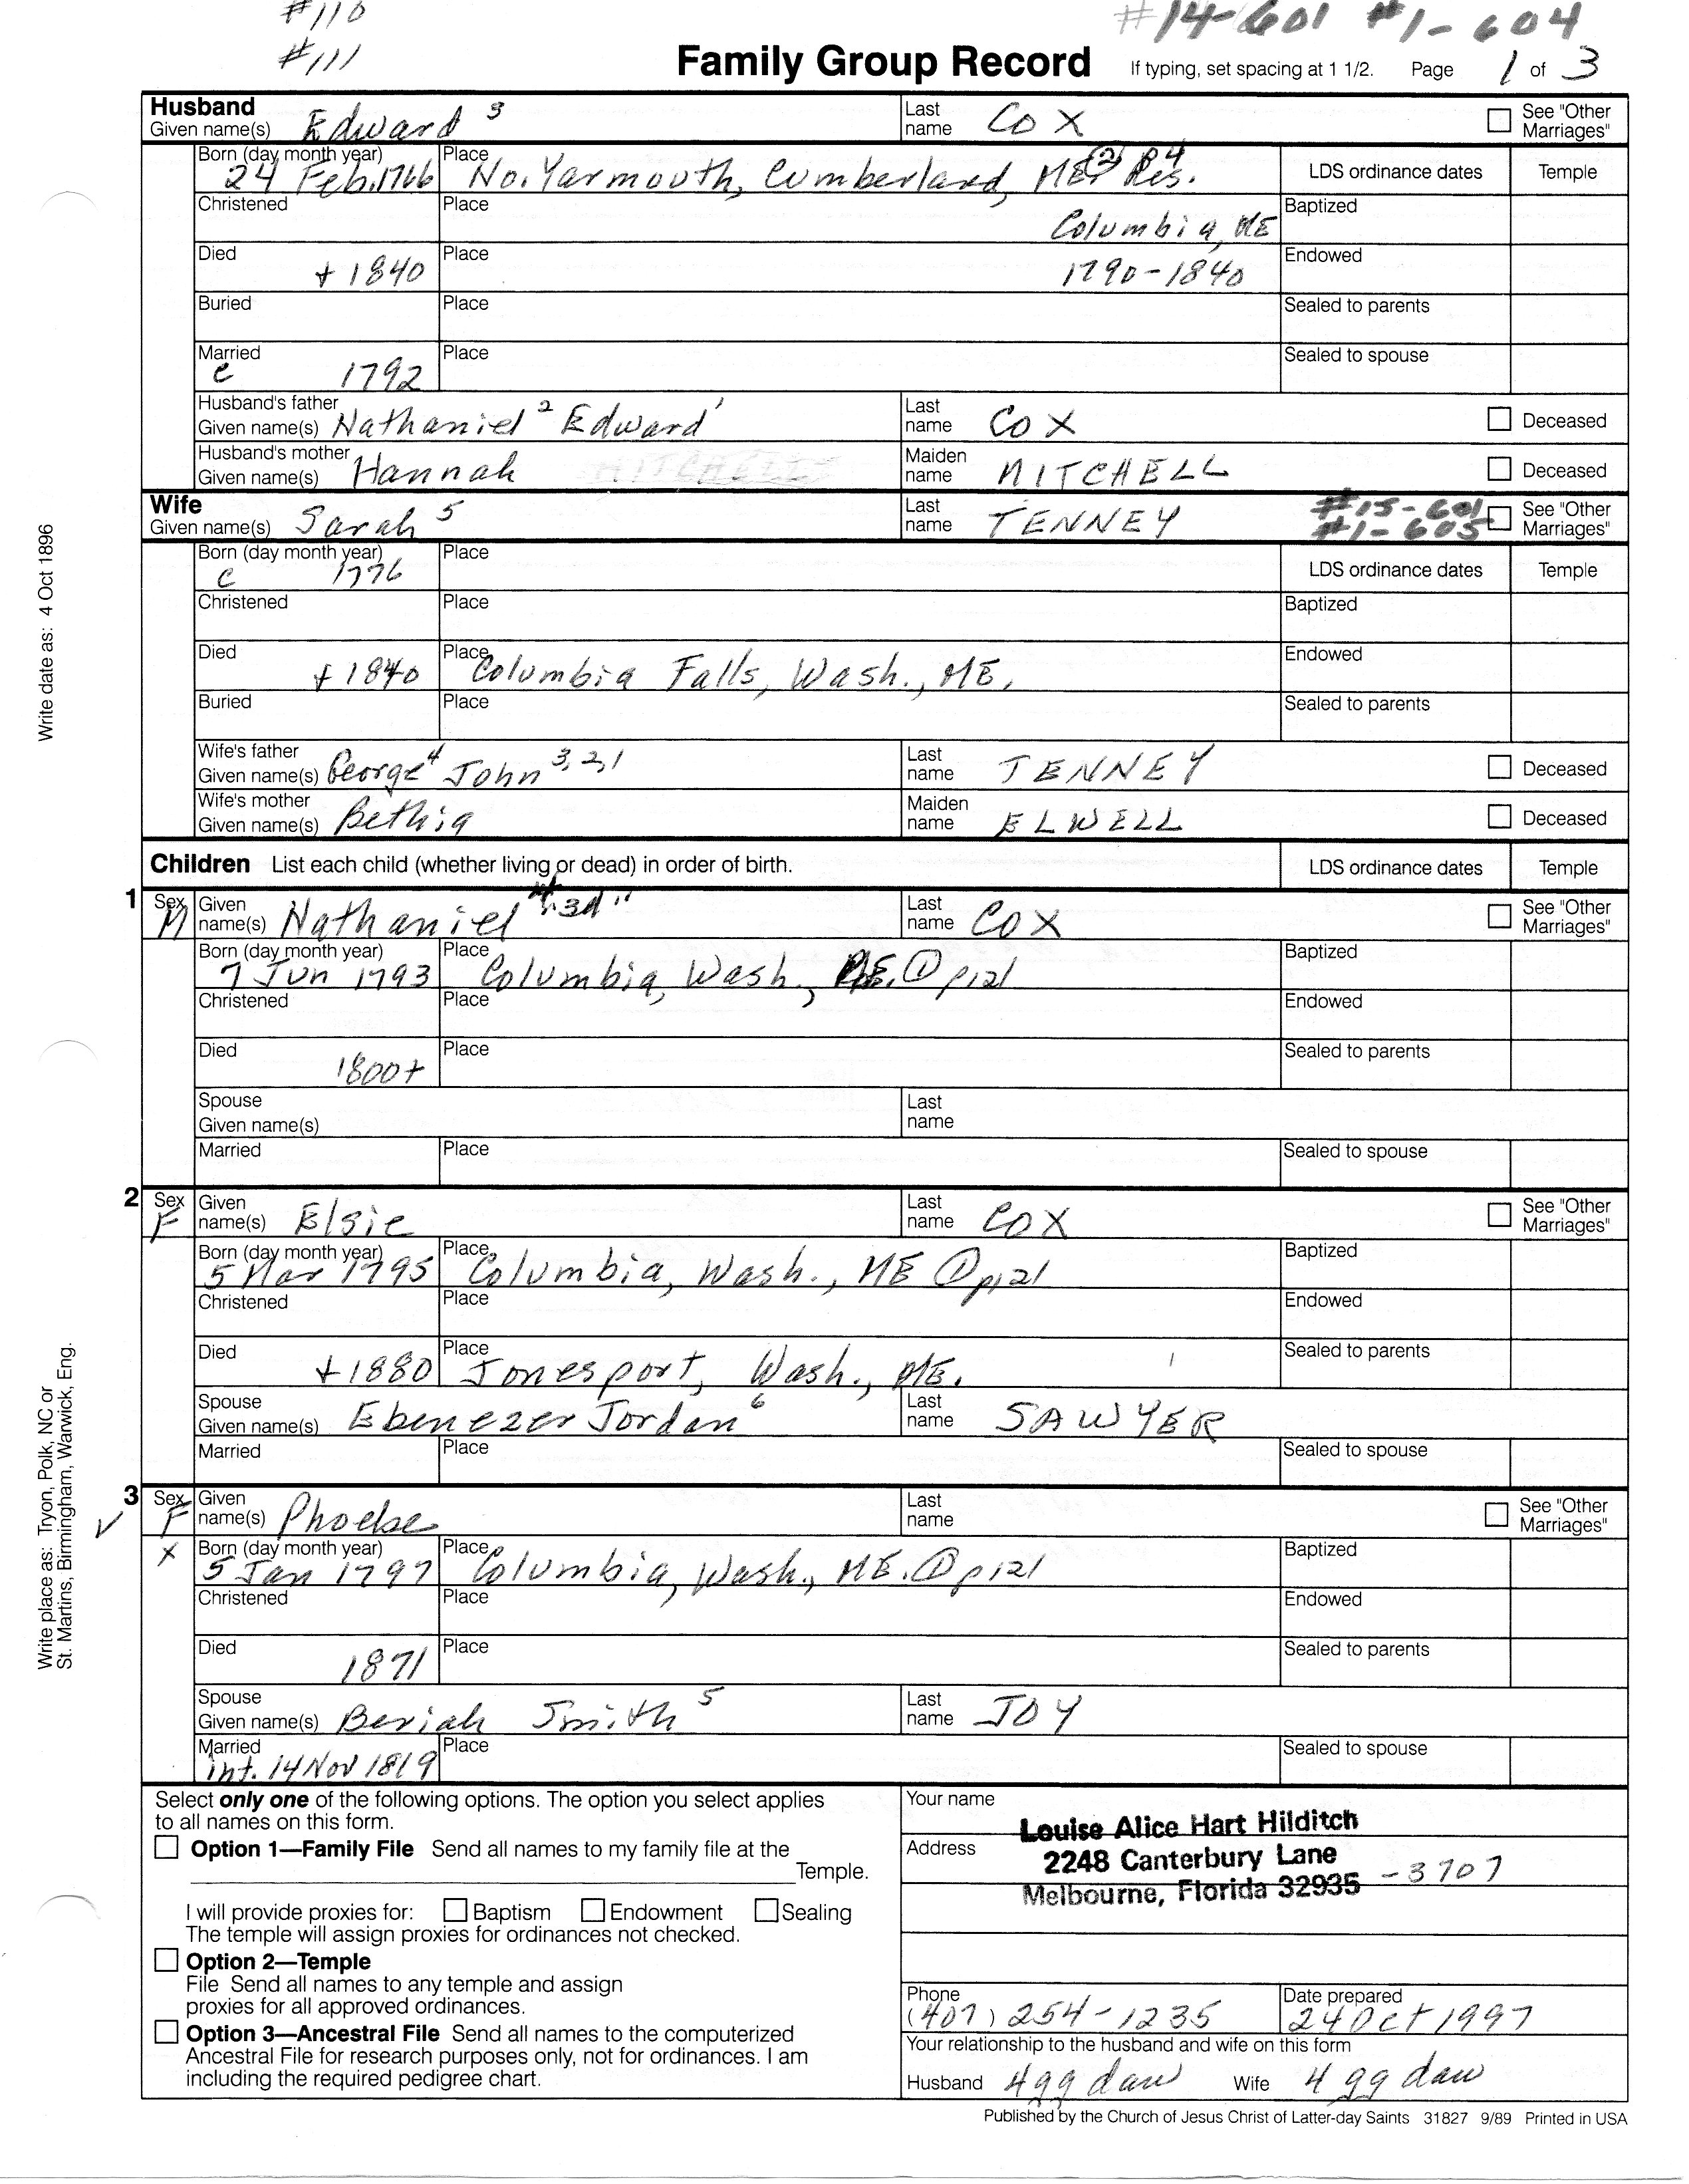 #110
#111
#14-601 #1-604
Family Group Record If typing, set spacing at 1 1/2. Page 1 of 3
Husband
Given name(s) Edward 3 Last name COX See "Other Marriages"
Born (day month year) 24 Feb. 1766 Place No. Yarmouth, Cumberland, ME (2) P4 Res. LDS ordinance dates Temple
Christened Place Columbia, ME Baptized
Died + 1840 Place 1790-1840 Endowed
Buried Place Sealed to parents
Married c 1792 Place Sealed to spouse
Husband's father
Given name(s) Nathaniel 2 Edward 1 Last name COX Deceased
Husband's mother
Given name(s) Hannah MITCHELL Maiden name MITCHELL Deceased
Wife
Given name(s) Sarah 5 Last name TENNEY #15-601 #1-605 See "Other Marriages"
Born (day month year) c 1776 Place LDS ordinance dates Temple
Christened Place Baptized
Died + 1840 Place Columbia Falls, Wash., ME. Endowed
Buried Place Sealed to parents
Wife's father
Given name(s) George 4 John 3,2,1 Last name TENNEY Deceased
Wife's mother
Given name(s) Bethia Maiden name ELWELL Deceased
Children List each child (whether living or dead) in order of birth. LDS ordinance dates Temple
1 Sex M Given name(s) Nathaniel "3d" Last name COX See "Other Marriages"
Born (day month year) 7 Jun 1793 Place Columbia, Wash., ME. ① p121 Baptized
Christened Place Endowed
Died 1800+ Place Sealed to parents
Spouse
Given name(s) Last name
Married Place Sealed to spouse
2 Sex F Given name(s) Elsie Last name COX See "Other Marriages"
Born (day month year) 5 Mar 1795 Place Columbia, Wash., ME ① p121 Baptized
Christened Place Endowed
Died + 1880 Place Jonesport, Wash., ME. Sealed to parents
Spouse
Given name(s) Ebenezer Jordan 6 Last name SAWYER
Married Place Sealed to spouse
3 Sex F Given name(s) Phoebe Last name See "Other Marriages"
X Born (day month year) 5 Jan 1797 Place Columbia, Wash., ME. ① p121 Baptized
Christened Place Endowed
Died 1871 Place Sealed to parents
Spouse
Given name(s) Beriah Smith 5 Last name JOY
Married int. 14 Nov 1819 Place Sealed to spouse
Select only one of the following options. The option you select applies
to all names on this form.
Option 1—Family File Send all names to my family file at the
Temple.
I will provide proxies for: Baptism Endowment Sealing
The temple will assign proxies for ordinances not checked.
Option 2—Temple
File Send all names to any temple and assign
proxies for all approved ordinances.
Option 3—Ancestral File Send all names to the computerized
Ancestral File for research purposes only, not for ordinances. I am
including the required pedigree chart.
Your name Louise Alice Hart Hilditch
Address 2248 Canterbury Lane
Melbourne, Florida 32935 -3707
Phone (407) 254-1235 Date prepared 24 Oct 1997
Your relationship to the husband and wife on this form
Husband 4gg dau Wife 4 gg dau
Published by the Church of Jesus Christ of Latter-day Saints 31827 9/89 Printed in USA
Write date as: 4 Oct 1896
Write place as: Tryon, Polk, NC or
St. Martins, Birmingham, Warwick, Eng.